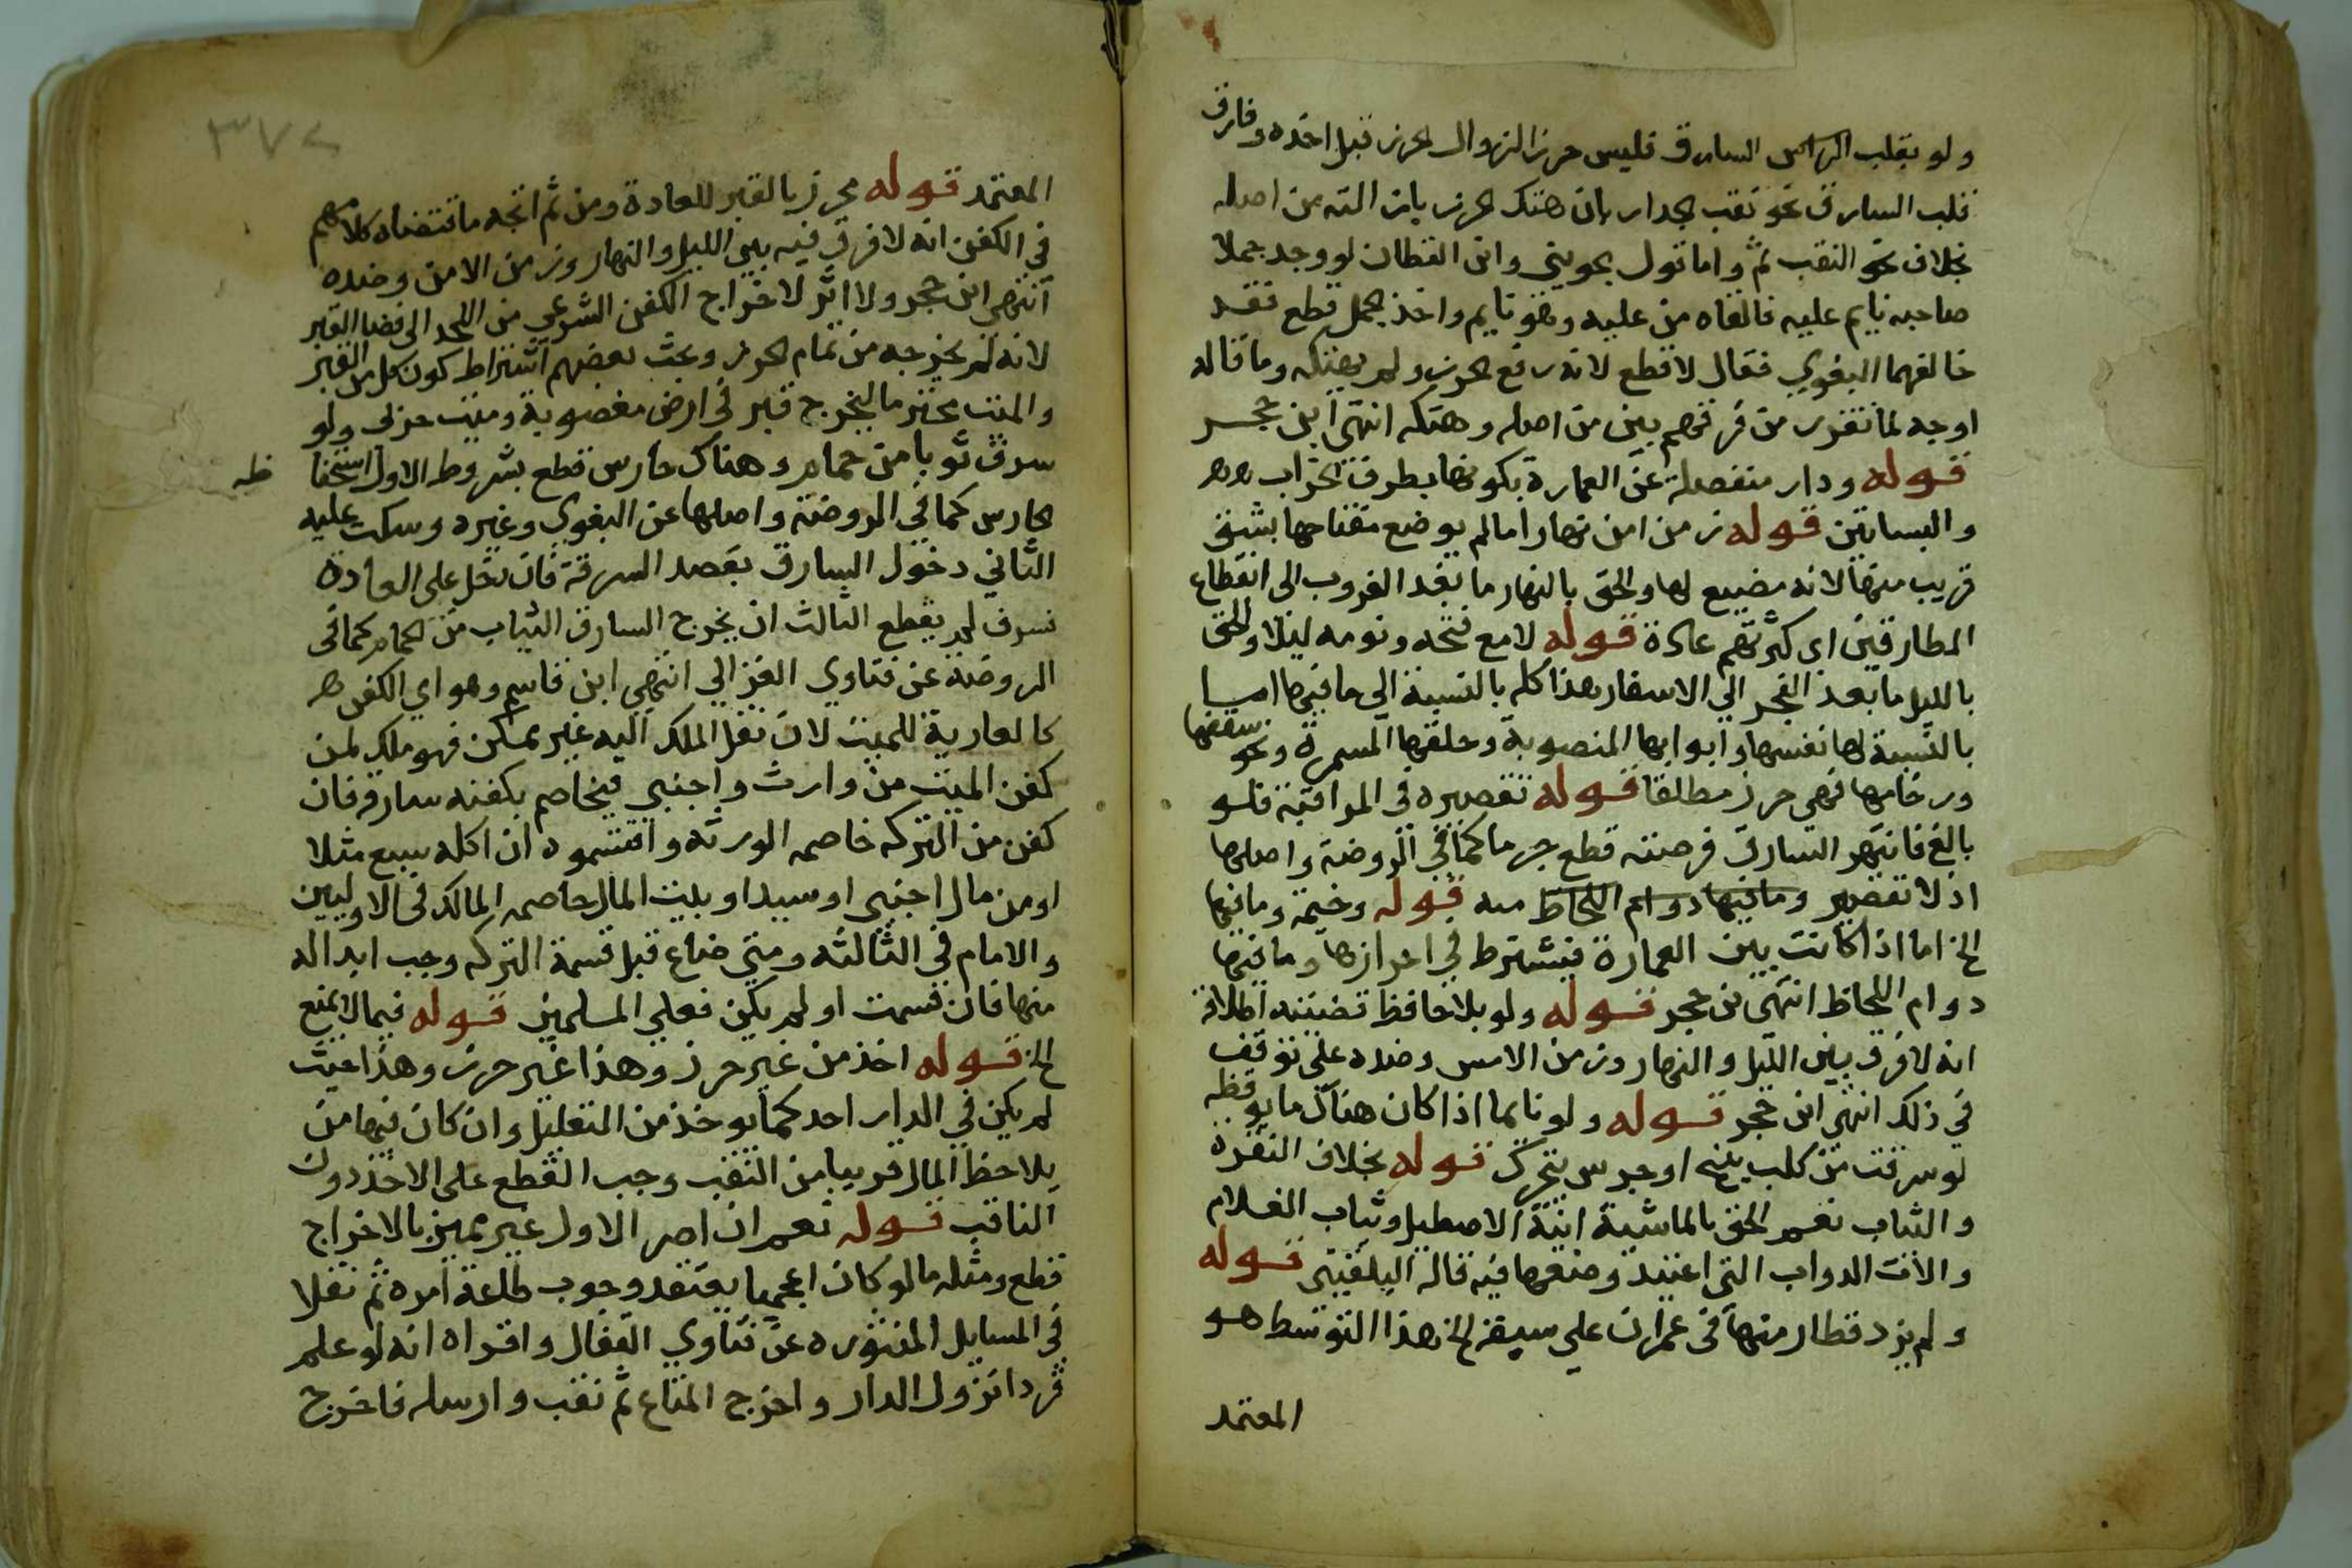 ولو بقلب السارق فليس حرز الزوال الحرز قبل اخذه وفارق
قلب السارق نحو نقب الجدار بان هتك الحرز بان الته من اصله
بخلاف نحو النقب ثم واما قول الجويني وابن القطان لو وجد جملا
صاحبه نايم عليه فالقاه من عليه وهو نايم واخذ الجمل قطع فقد
خالفهما البغوي فقال لا قطع لانه رفع الحرز ولم يهتكه وما قاله
اوجه لما تقرر من فرقهم بين من اصله وهتكه انتهى ابن حجر
قوله ودار منفصلة عن العمارة بكونها بطرف الخراب
والبساتين قوله زمن امن نهارا ما لم يوضع مفتاحها بشق
قريب منها لانه مضيع لها والحق بالنهار ما بعد الغروب الى انقطاع
الطارقين اى كثرتهم عادة قوله لا مع فتحه ونومه ليلا والحق
بالليل ما بعد الفجر الى الاسفار هذا كله بالنسبة الى ما فيها اما
بالنسبة لها نفسها وابوابها المنصوبة وحلقها المسمرة ونحو سقفها
ورخامها فهى حرز مطلقا قوله تقصيره فى المراقبة فلو
بالغ فانتهز السارق فرصته قطع جزما كما فى الروضة واصلها
اذ لا تقصير وما فيها دوام اللحاظ منه قوله وخيمة وما فيها
الخ اما اذا كانت بين العمارة فيشترط في احرازها وما فيها
دوام اللحاظ انتهى بن حجر قوله ولو بلا حافظ قضيته اطلاقه
انه لا فرق بين الليل والنهار وزمن الامن وضده على توقف
في ذلك انتهى ابن حجر قوله ولو نايما اذا كان هناك ما يوقظه
لو سرقت من كلب ينبح او جرس يتحرك قوله بخلاف النقرة
والثياب نعم الحق بالماشية انية الاصطبل وثياب الغلام
والات الدواب التى اعتيد وضعها فيه قاله البلقينى قوله
ولم يزد قطار منها فى عمران على سبعة الخ هذا التوسط هو
المعتمد
٣٧٢
المعتمد قوله محرز بالقبر للعادة ومن ثم اتجه ما اقتضاه كلامهم
في الكفن انه لا فرق فيه بين الليل والنهار وزمن الامن وضده
انتهى ابن حجر ولا اثر لاخراج الكفن الشرعي من اللحد الى فضا القبر
لانه لم يخرجه من تمام الحرز وبحث بعضهم اشتراط كون كل من القبر
والميت محترما ليخرج قبر في ارض مغصوبة وميت حربى ولو
سرق ثوبا من حمام وهناك حارس قطع بشروط الاول استحفا
ظه
الحارس كما في الروضة واصلها عن البغوى وغيره وسكت عليه
الثاني دخول السارق بقصد السرقة فان دخل على العادة
فسرق لم يقطع الثالث ان يخرج السارق الثياب من الحمام كما فى
الروضة عن فتاوى الغزالي انتهى ابن قاسم وهو اي الكفن
كالعارية للميت لان نقل الملك اليه غير ممكن فهو ملك لمن
كفن الميت من وارث واجنبي فيخاصم بكفنه سارقه فان
كفن من التركه خاصمه الورثه واقتسموه ان اكله سبع مثلا
او من مال اجنبى او سيد او بيت المال خاصمه المالك فى الاوليين
والامام في الثالثه ومتى ضاع قبل قسمة التركه وجب ابداله
منها فان قسمت او لم يكن فعلي المسلمين قوله فيما لا يمنع
الخ قوله اخذ من غير حرز وهذا غير حرز وهذا حيث
لم يكن في الدار احد كما يوخذ من التعليل وان كان فيها من
يلاحظ المال قريبا من النقب وجب القطع على الاخذ دون
الناقب قوله نعم ان امر الاول غير مميز بالاخراج
قطع ومثله ما لو كان اعجميا يعتقد وجوب طاعة امره ثم نقلا
في المسايل المنثوره عن فتاوي القفال واقراه انه لو علم
قردا نزول الدار واخرج المتاع ثم نقب وارسله فاخرج